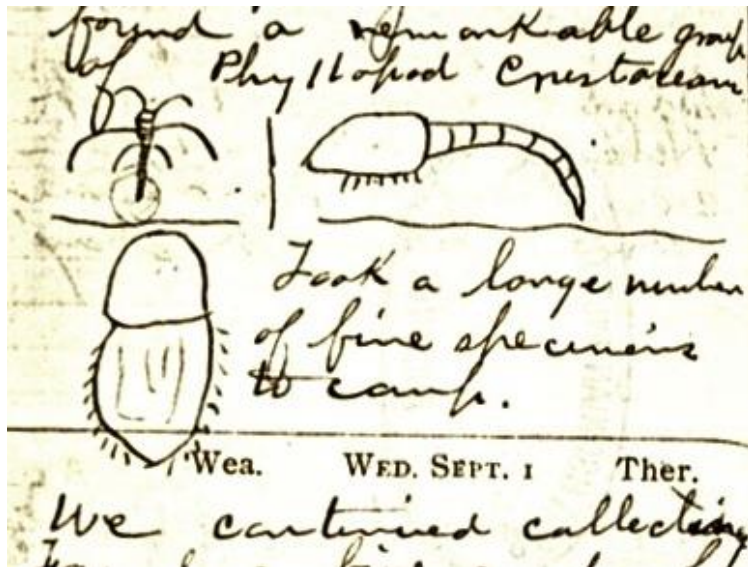 found a remarkable group
of Phyllopod Crustaceans
Took a large number
of fine specimens
to camp.
Wea. WED. SEPT. 1 Ther.
We continued collecting